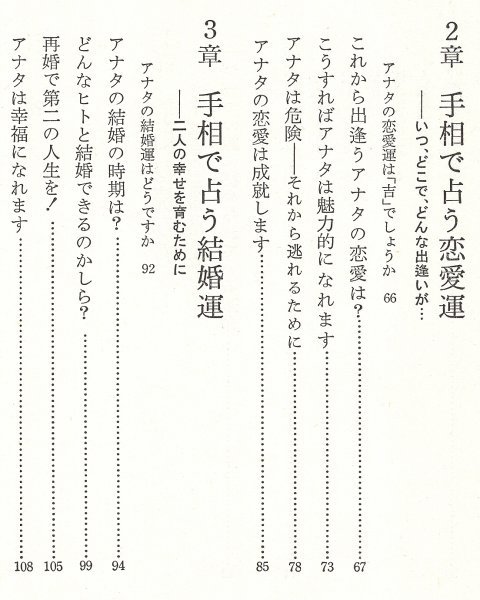 2章 手相で占う恋愛運
――いつ、どこで、どんな出逢いが…
アナタの恋愛運は「吉」でしょうか 66
これから出逢うアナタの恋愛は?……………… 67
こうすればアナタは魅力的になれます……………… 73
アナタは危険――それから逃れるために……………… 78
アナタの恋愛は成就します……………… 85
3章 手相で占う結婚運
――二人の幸せを育むために
アナタの結婚運はどうですか 92
アナタの結婚の時期は?……………… 94
どんなヒトと結婚できるのかしら?……………… 99
再婚で第二の人生を!……………… 105
アナタは幸福になれます……………… 108